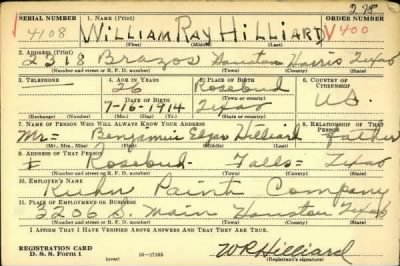 298
SERIAL NUMBER 1. NAME (Print) ORDER NUMBER
4108 WILLIAM RAY HILLIARD V400
(First) (Middle) (Last)
2. ADDRESS (Print)
2318 Brazos Houston Harris Texas
(Number and street or R. F. D. number) (Town) (County) (State)
3. TELEPHONE 4. AGE IN YEARS 5. PLACE OF BIRTH 6. COUNTRY OF CITIZENSHIP
— 26 Rosebud
DATE OF BIRTH (Town or county) U.S.
7-16-1914 Texas
(Exchange) (Number) (Mo.) (Day) (Yr.) (State or country)
7. NAME OF PERSON WHO WILL ALWAYS KNOW YOUR ADDRESS 8. RELATIONSHIP OF THAT PERSON
Mr. Benjamin Elgar Hilliard Father
(Mr., Mrs., Miss) (First) (Middle) (Last)
9. ADDRESS OF THAT PERSON
Rosebud - Falls - Texas
(Number and street or R. F. D. number) (Town) (County) (State)
10. EMPLOYER'S NAME
Kuhn Paint Company
11. PLACE OF EMPLOYMENT OR BUSINESS
3206 S. Main Houston Texas
(Number and street or R. F. D. number) (Town) (County) (State)
I AFFIRM THAT I HAVE VERIFIED ABOVE ANSWERS AND THAT THEY ARE TRUE.
REGISTRATION CARD
D. S. S. Form 1 (over) 16—17105 WR Hilliard
(Registrant's signature)